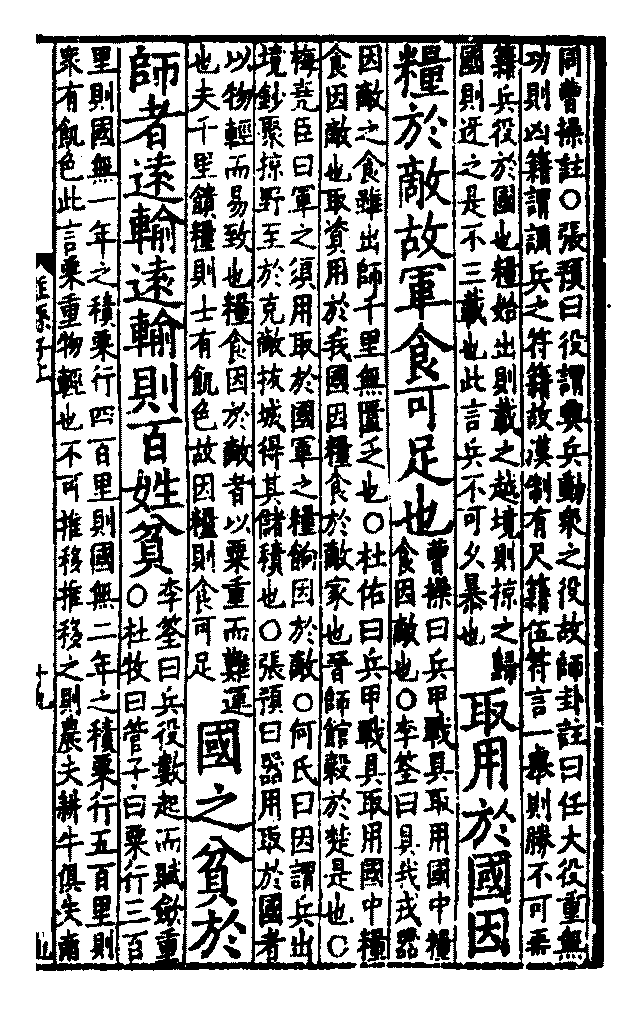 同曹操註○張預曰役謂興兵動衆之役故師卦註曰任大役重無
功則凶籍謂調兵之符籍故漢制有尺籍伍符言一舉則勝不可再
籍兵役於國也糧始出則載之越境則掠之歸
國則迓之是不三載也此言兵不可久暴也
取用於國因
糧於敵故軍食可足也
曹操曰兵甲戰具取用國中糧
食因敵也○李筌曰具我戎器
因敵之食雖出師千里無匱乏也○杜佑曰兵甲戰具取用國中糧
食因敵也取資用於我國因糧食於敵家也晉師館穀於楚是也○
梅堯臣曰軍之須用取於國軍之糧餉因於敵○何氏曰因謂兵出
境鈔聚掠野至於克敵拔城得其儲積也○張預曰器用取於國者
以物輕而易致也糧食因於敵者以粟重而難運
也夫千里饋糧則士有飢色故因糧則食可足
國之貧於
師者遠輸遠輸則百姓貧
李筌曰兵役數起而賦斂重
○杜牧曰管子曰粟行三百
里則國無一年之積粟行四百里則國無二年之積粟行五百里則
衆有飢色此言粟重物輕也不可推移推移之則農夫耕牛俱失南
孫子上